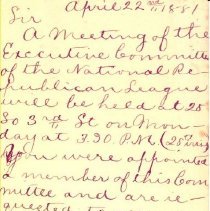 April 22nd, 1881
Sir
A Meeting of the
Executive Committee
of the National Re-
publican League
will be held at 20
So 3rd St on Mon
day at 3.30 P.M. (25th inst)
You were appointed
a member of this Com
mittee and are re-
quested to